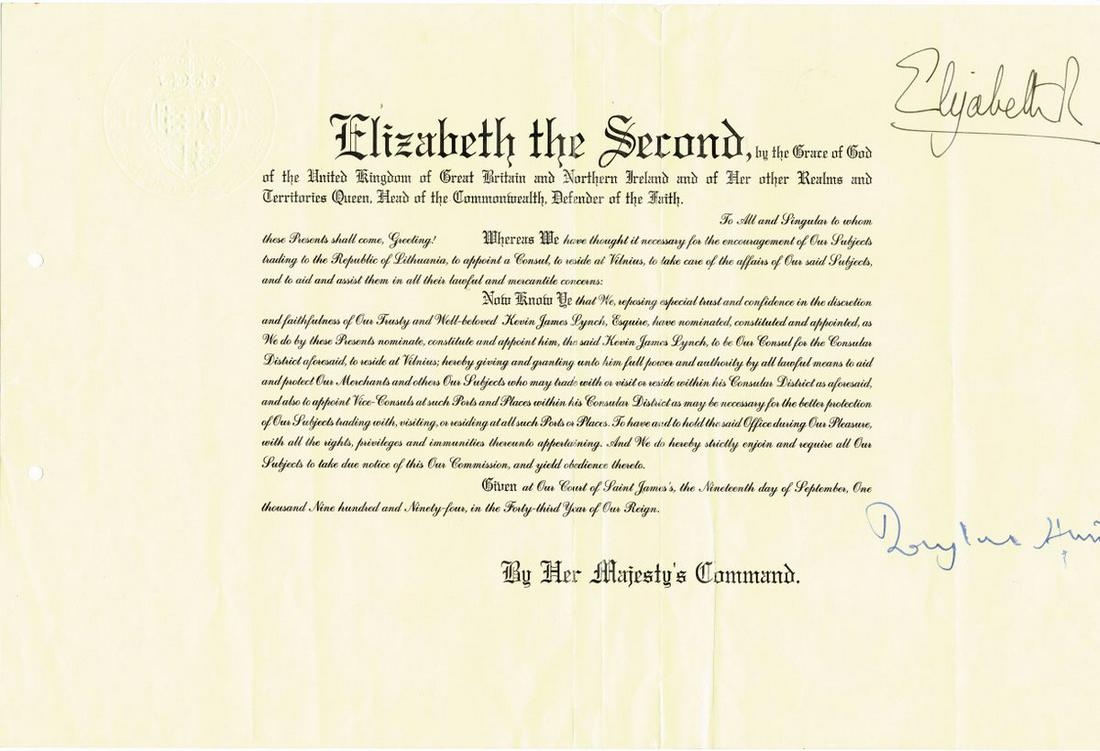 Elizabeth R
Elizabeth the Second, by the Grace of God
of the United Kingdom of Great Britain and Northern Ireland and of Her other Realms and
Territories Queen, Head of the Commonwealth, Defender of the Faith.
To All and Singular to whom
these Presents shall come, Greeting! Whereas We have thought it necessary for the encouragement of Our Subjects
trading to the Republic of Lithuania, to appoint a Consul, to reside at Vilnius, to take care of the affairs of Our said Subjects,
and to aid and assist them in all their lawful and mercantile concerns:
Now Know Ye that We, reposing especial trust and confidence in the discretion
and faithfulness of Our Trusty and Well-beloved Kevin James Lynch, Esquire, have nominated, constituted and appointed, as
We do by these Presents nominate, constitute and appoint him, the said Kevin James Lynch, to be Our Consul for the Consular
District aforesaid, to reside at Vilnius; hereby giving and granting unto him full power and authority by all lawful means to aid
and protect Our Merchants and others Our Subjects who may trade with or visit or reside within his Consular District as aforesaid,
and also to appoint Vice-Consuls at such Ports and Places within his Consular District as may be necessary for the better protection
of Our Subjects trading with, visiting, or residing at all such Ports or Places. To have and to hold the said Office during Our Pleasure,
with all the rights, privileges and immunities thereunto appertaining. And We do hereby strictly enjoin and require all Our
Subjects to take due notice of this Our Commission, and yield obedience thereto.
Given at Our Court of Saint James's, the Nineteenth day of September, One
thousand Nine hundred and Ninety-four, in the Forty-third Year of Our Reign.
Douglas
By Her Majesty's Command.